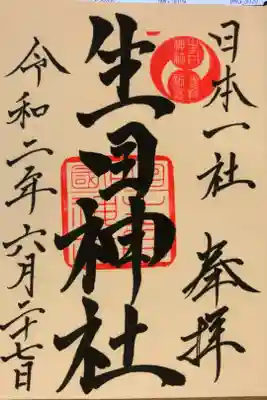 日本一社 奉拝
生田神社
令和二年六月二十七日